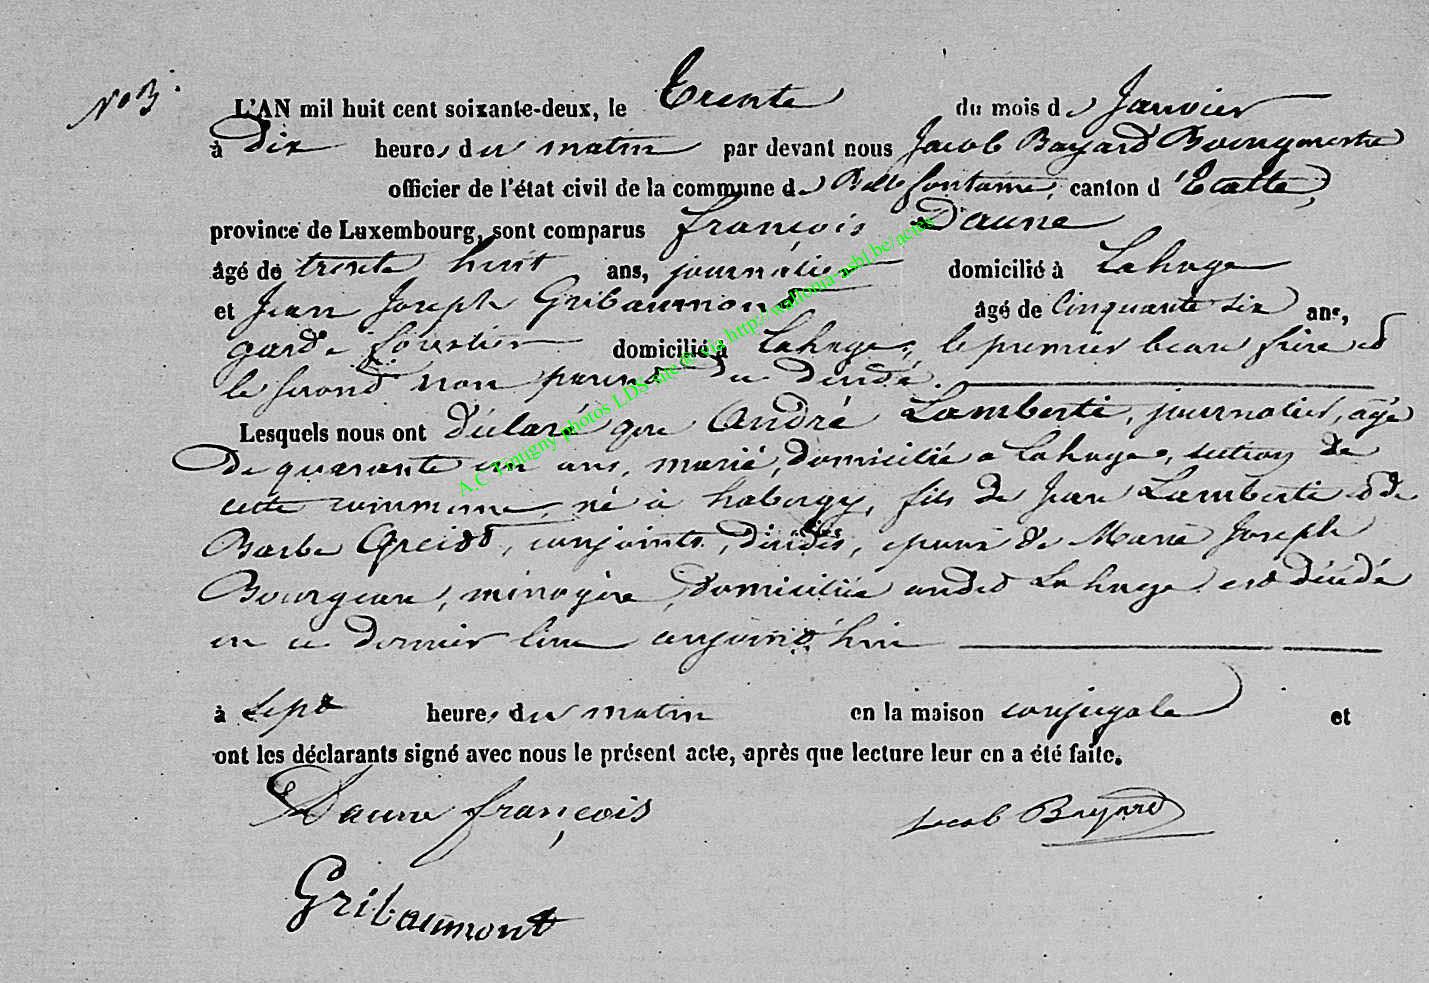 No 3
L'AN mil huit cent soixante-deux, le Trente du mois de Janvier
à Dix heures du matin par devant nous Jacob Bayard Bourgmestre
officier de l'état civil de la commune de Bellefontaine, canton d'Etalle,
province de Luxembourg, sont comparus françois Daune
âgé de trente huit ans, journalier domicilié à Lahage
et Jean Joseph Gribaumont âgé de Cinquante six ans,
garde forestier domicilié à Lahage, le premier beau frère et
le second non parent du décédé.
Lesquels nous ont déclaré que André Lamberti, journalier, âgé
De quarante un ans, marié, domicilié à Lahage, section de
cette commune, né à habergy, fils de Jean Lamberti et de
Barbe, conjoints, décédés, époux de Marie Joseph
Bourgeau, ménagère, domiciliée audit Lahage est décédé
en ce dernier lieu aujourd'hui
à sept heures du matin en la maison conjugale et
ont les déclarants signé avec nous le présent acte, après que lecture leur en a été faite.
Daune françois Jacob Bayard
Gribaumont
A.C Tintigny photos LDS site @ via http://wallonia-asbl.be/actes